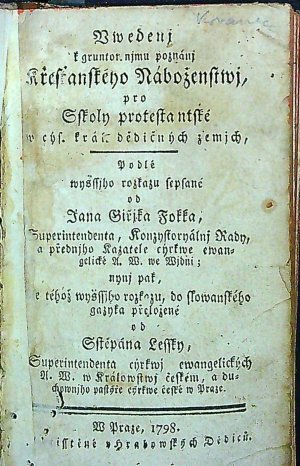 Vwedenj
k gruntor. njmu poznánj
Křesťanského Náboženstwj,
pro
Sskoly protestantské
w cýs. král. dědičných zemjch,
Podlé
wyššjho rozkazu sepsané
od
Jana Giřjka Fokka,
Superintendenta, Konzystoryálnj Rady,
a přednjho Kazatele cýrkwe ewan-
gelické A. W. we Wjdni;
nynj pak,
z téhož wyššjho rozkazu, do slowanského
gazyka přeložené
od
Sstěpána Lessky,
Superintendenta cýrkwj ewangelických
A. W. w Královstwj českém, a du-
chownjho pastýře cýrkwe české w Praze.
W Praze, 1798.
Hrabowských Dědiců.